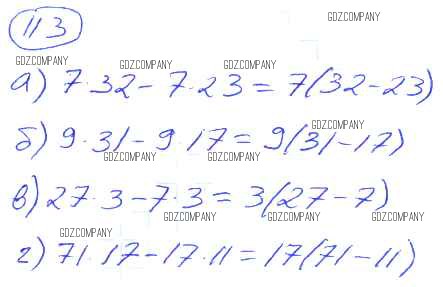 113
GDZCOMPANY
GDZCOMPANY GDZCOMPANY GDZCOMPANY
а) 7·32 - 7·23 = 7(32 - 23)
GDZCOMPANY
б) 9·31 - 9·17 = 9(31 - 17)
GDZCOMPANY GDZCOMPANY
в) 27·3 - 7·3 = 3(27 - 7)
GDZCOMPANY GDZCOMPANY GDZCOMPANY
GDZCOMPANY
г) 71·17 - 17·11 = 17(71 - 11)